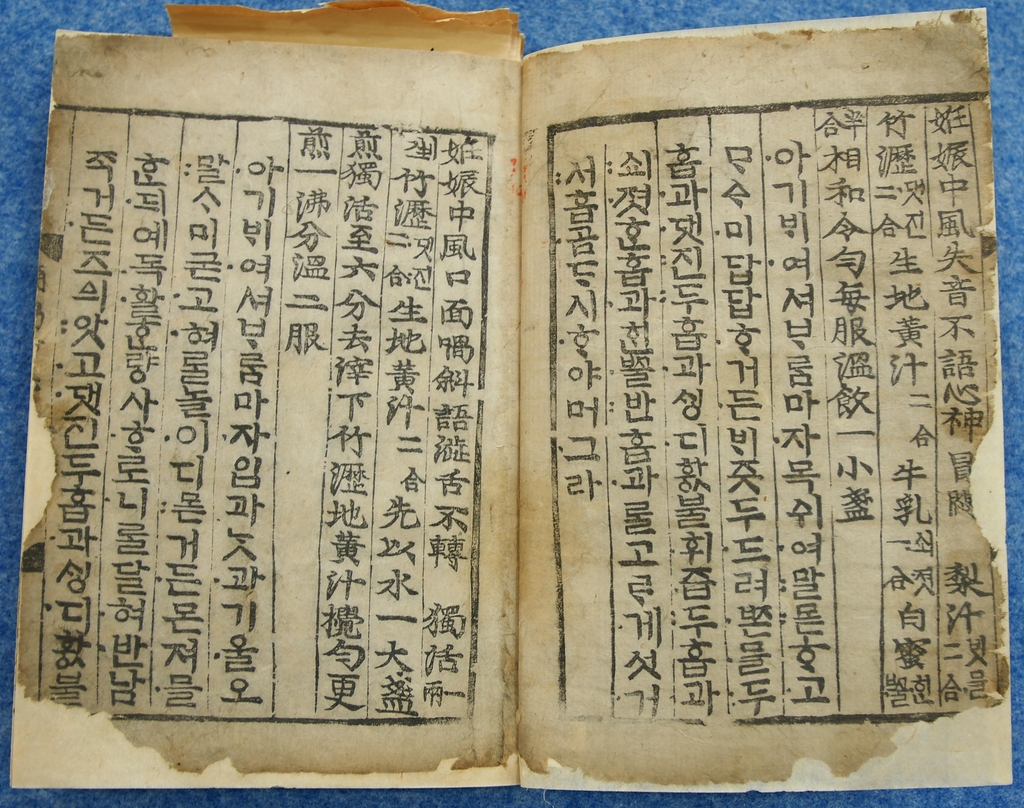 姙娠中風失音不語心神冒悶 梨汁ᄇᆡᆺ믈二合
竹瀝댓진二合 生地黃汁二合 牛乳쇠졋一合 白蜜ᄒᆡᆫᄢᅮᆯ半
合相和令勻每服溫飮一小盞
아기ᄇᆡ여셔ᄇᆞᄅᆞᆷ마자목쉬여말몯ᄒᆞ고
ᄆᆞᅀᆞ미답답ᄒᆞ거든ᄇᆡ즛두드려ᄧᆞᆫ믈두
홉과댓진두홉과ᄉᆡᆼ디홧불휘즙두홉과
쇠졋ᄒᆞᆫ홉과ᄒᆡᆫᄢᅮᆯ반홉과ᄅᆞᆯ고ᄅᆞ게섯거
서홉곰ᄃᆞ시ᄒᆞ야머그라
姙娠中風口面喎斜語澁舌不轉 獨活一兩
生竹瀝댓진二合 生地黃汁二合 先以水一大盞
煎獨活至六分去滓下竹瀝地黃汁攪勻更
煎一沸分溫二服
아기ᄇᆡ여셔ᄇᆞᄅᆞᆷ마자입과ᄂᆞᆺ과기울오
말ᄉᆞ미굳고혀ᄅᆞᆯ놀이디몯거든몬져믈
ᄒᆞᆫ되예독활ᄒᆞᆫ량사ᄒᆞ로니ᄅᆞᆯ달혀반남
죽거든즈ᅀᅴ앗고댓진두홉과ᄉᆡᆼ디홧불